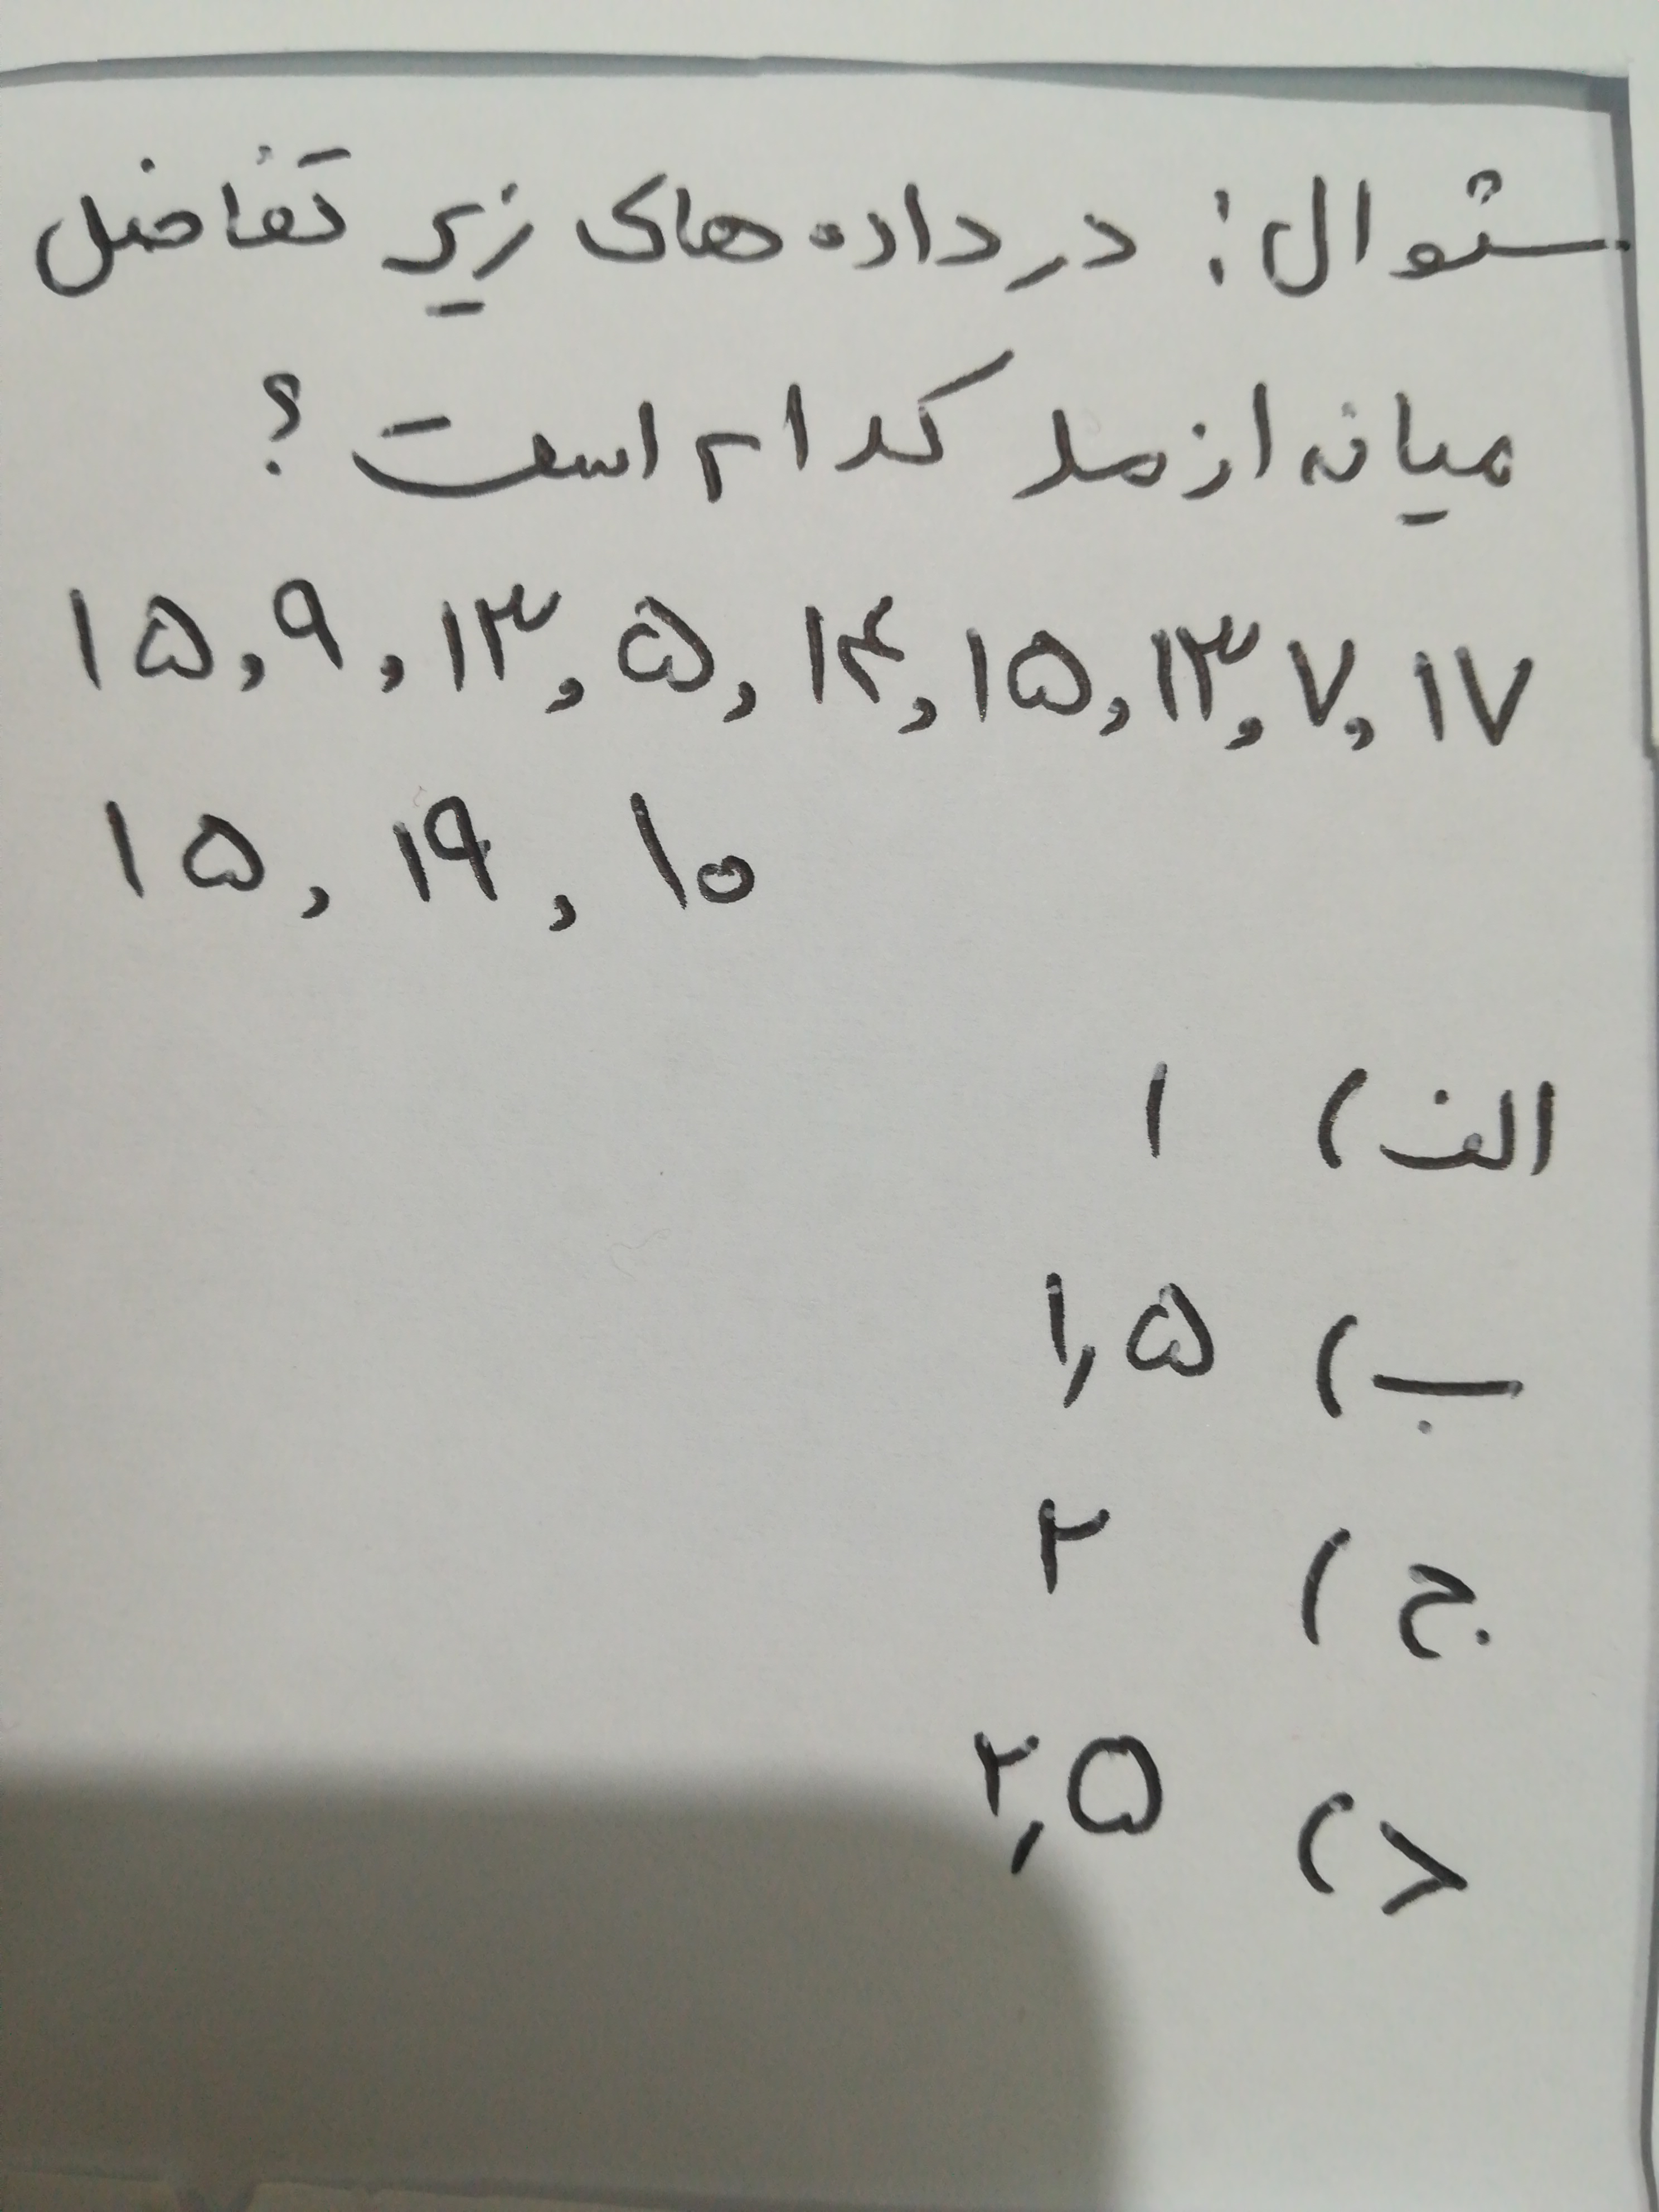 سئوال: در داده های زیر تفاضل
میانه از مد کدام است؟
۱۵, ۹, ۱۳, ۵, ۱۴, ۱۵, ۱۳, ۷, ۱۷
۱۵, ۱۹, ۱۰
الف) ۱
ب) ۱,۵
ج) ۲
د) ۲,۵